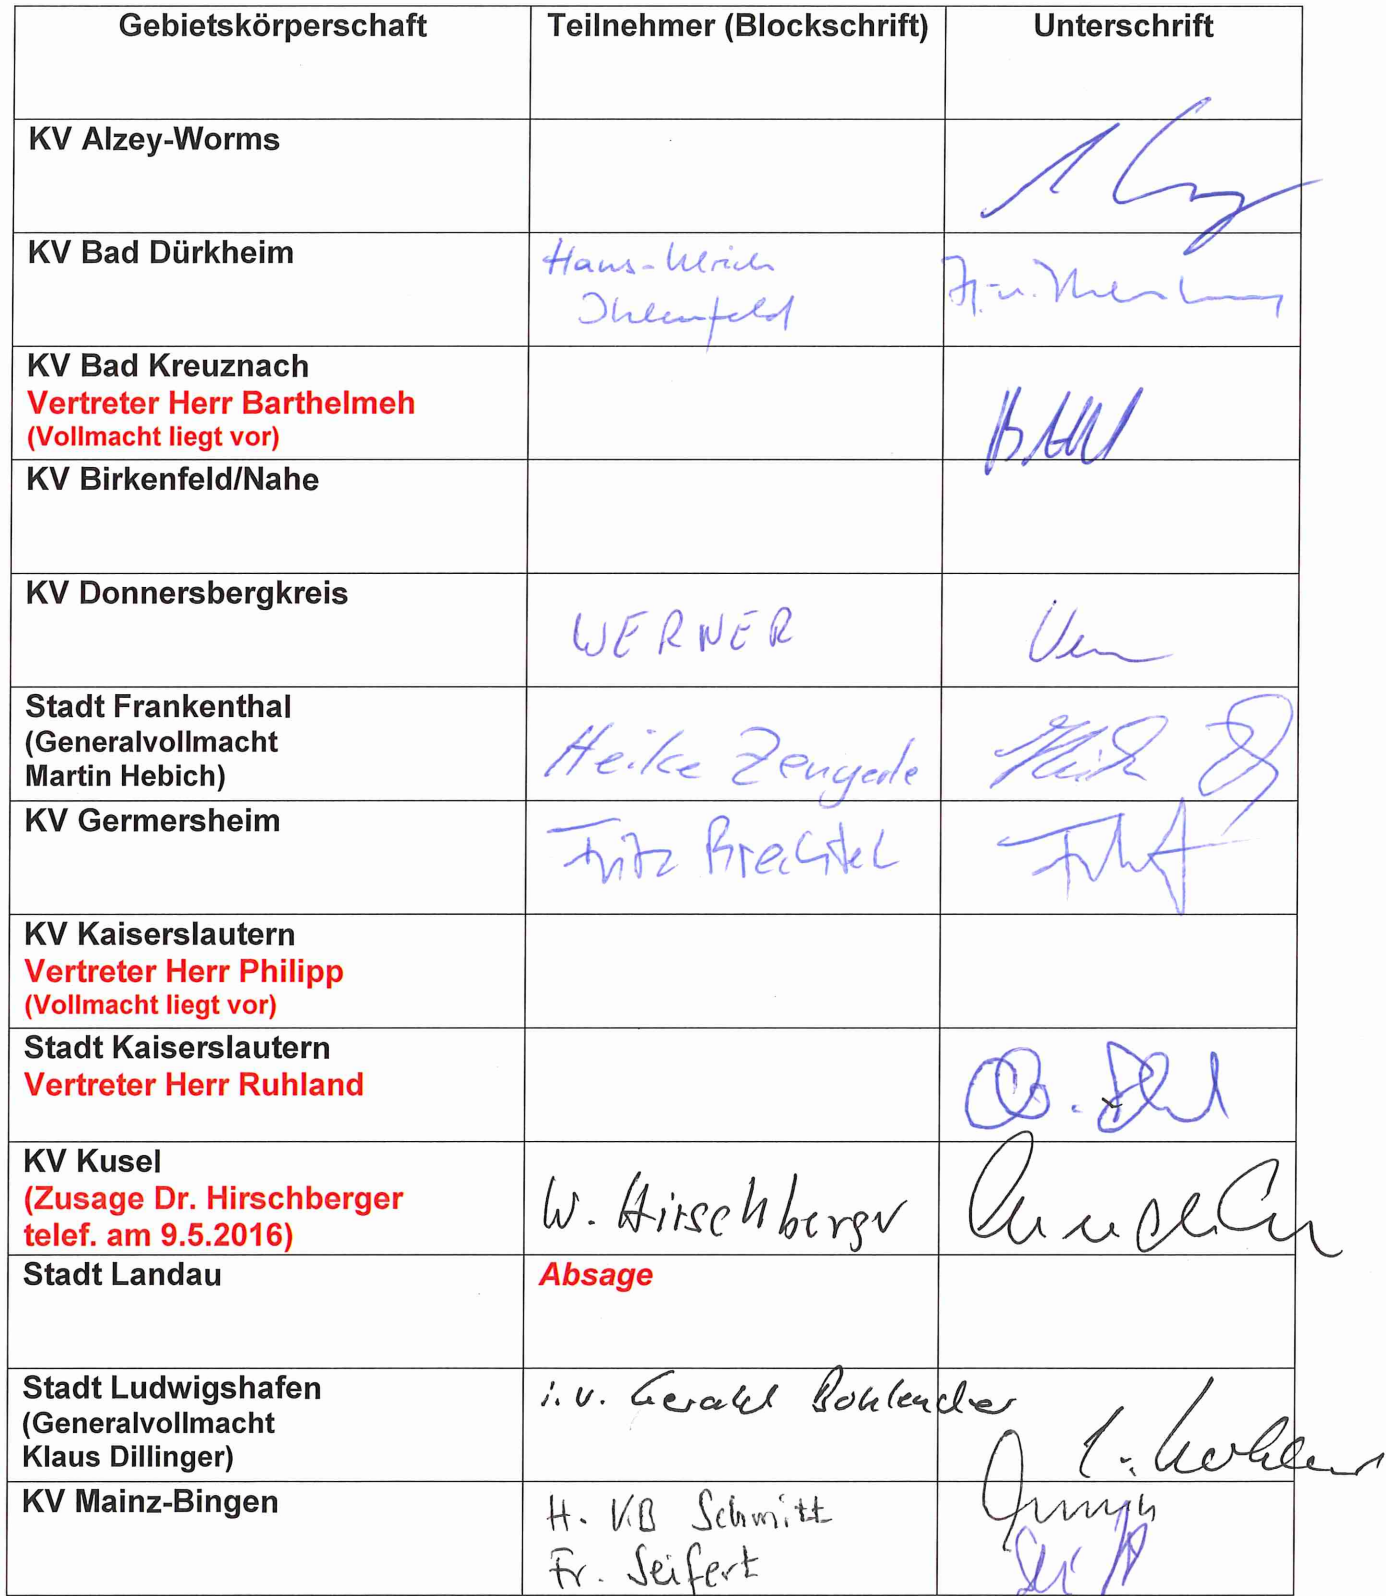 Gebietskörperschaft Teilnehmer (Blockschrift) Unterschrift
KV Alzey-Worms
KV Bad Dürkheim Hans-Ulrich
Ihlenfeld
KV Bad Kreuznach
Vertreter Herr Barthelmeh
(Vollmacht liegt vor)
KV Birkenfeld/Nahe
KV Donnersbergkreis
WERNER
Stadt Frankenthal
(Generalvollmacht
Martin Hebich)
Heike Zengerle
KV Germersheim
Fritz Brechtel
KV Kaiserslautern
Vertreter Herr Philipp
(Vollmacht liegt vor)
Stadt Kaiserslautern
Vertreter Herr Ruhland
KV Kusel
(Zusage Dr. Hirschberger
telef. am 9.5.2016)
W. Hirschberger
Stadt Landau Absage
Stadt Ludwigshafen
(Generalvollmacht
Klaus Dillinger)
i.V. Gerald Bohlender
KV Mainz-Bingen
H. KB Schmitt
Fr. Seifert